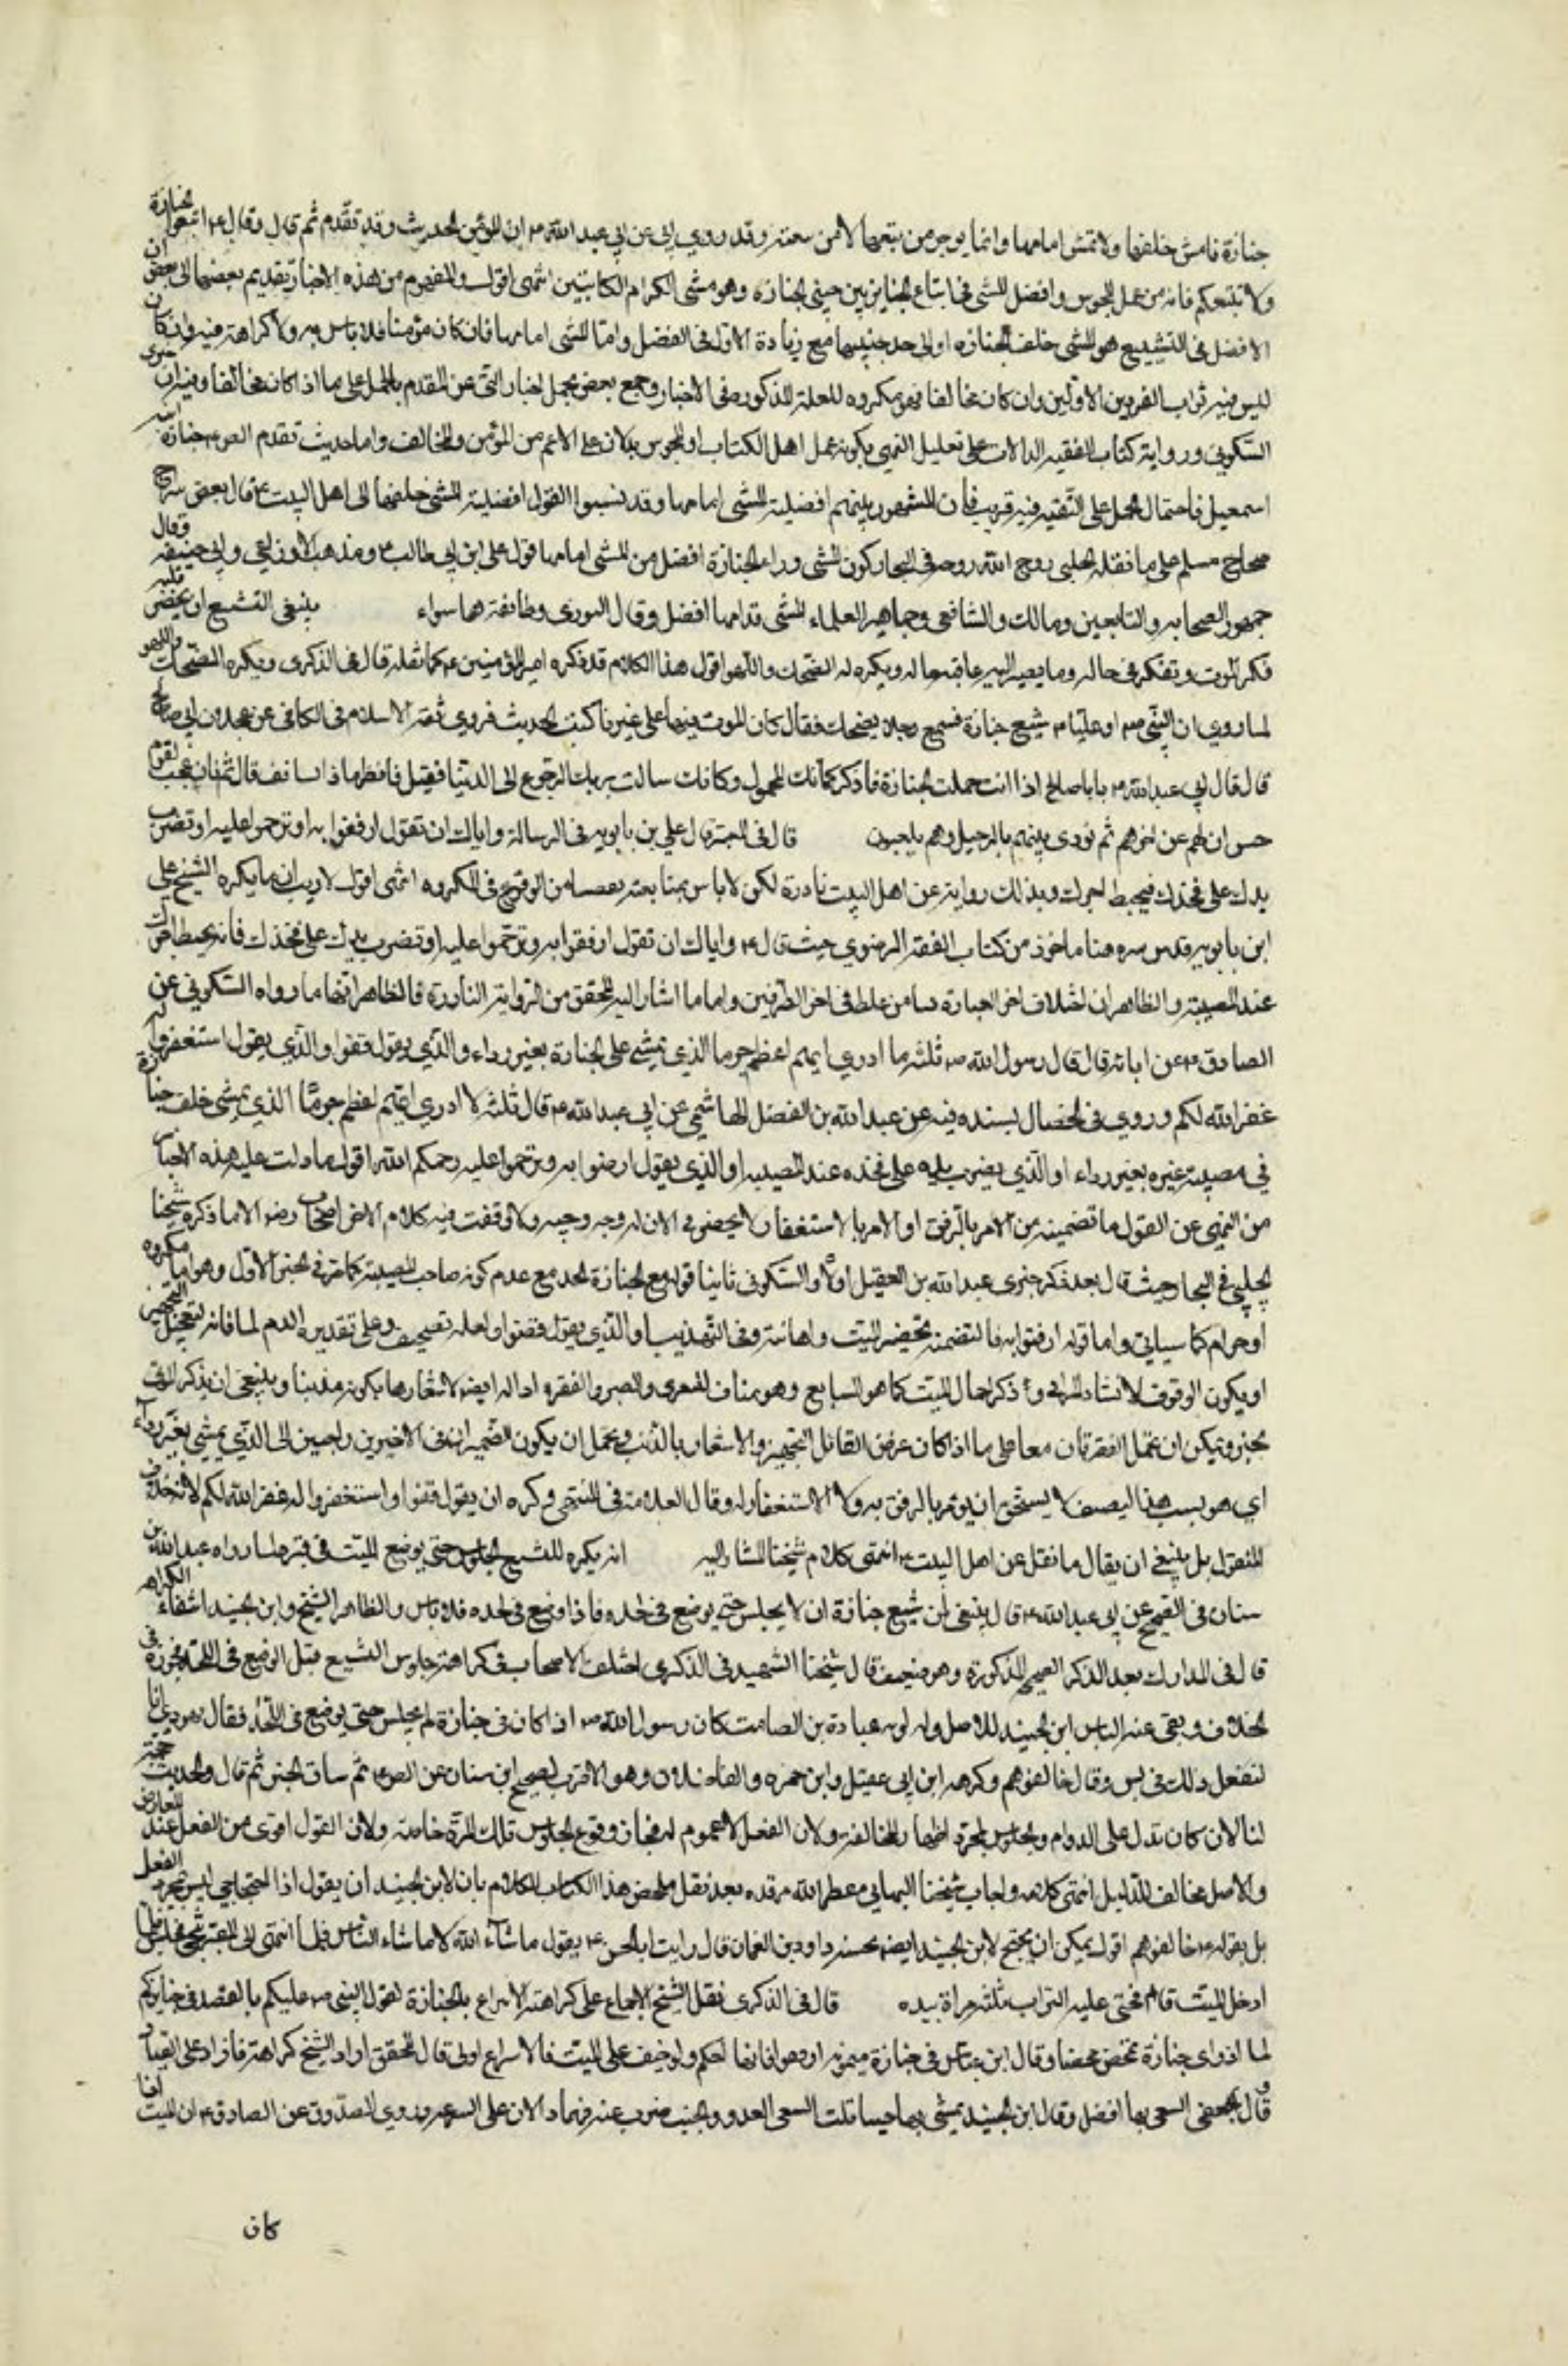 جنازة فامش خلفها ولا تمش امامها وانما يوجر من تبعها لا من تبعته وقد روي لي عن ابي عبد الله ۴ ان المؤمن الحديث وقد تقدم ثم قال وقال ۴ اتبعوا الجنازة
ولا تتبعكم فانه من عمل المجوس وافضل المشي في اتباع الجنايز بين جنبي الجنازه وهو مشي الكرام الكاتبين انتهى اقول والمفهوم من هذه الاخبار تقديم بعضها الى بعض ان
الافضل في التشييع هو المشي خلف الجنازه او الى احد جنبيها مع زيادة الاول في الفضل واما المشي امامها فان كان مؤمنا فلا باس به ولا كراهة فيه وان كان
ليس فيه ثواب الفردين الاولين وان كان مخالفا فهو مكروه للعلة المذكوره في الاخبار وجمع بعض بحمل اخبار النهي عن التقدم بالحمل على ما اذا كان مخالفا وفيه ان
السكوني ورواية كتاب الفقيه الدالات على تعليل النهي بكونه عمل اهل الكتاب او المجوس يدلان على الاعم من المؤمن والمخالف واما حديث تقدم الص ۴ جنازة ابنه
اسمعيل فاحتمال الحمل على التقيه فيه قريب فان المشهور بينهم افضلية المشي امامها وقد نسبوا القول افضلية المشي خلفها الى اهل البيت ۴ قال بعض شراح
صحاح مسلم على ما نقله المجلسي روح الله روحه في البحار كون المشي وراء الجنازة افضل من المشي امامها قول علي ابن ابي طالب ۴ ومذهب الاوزاعي وابي حنيفه وقال
جمهور الصحابه والتابعين ومالك والشافعي وجماهير العلماء المشي قدامها افضل وقال الثوري وطائفة هما سواء ينبغي التشيع ان يحضر قلبه
فكر الموت وتفكر في حاله وما يصير اليه عاقبة حاله ويكره له الضحك واللهو اقول هذا الكلام قد ذكره امير المؤمنين ۴ كما نقله قال في الذكرى ويكره الضحك واللهو
لما روي ان النبي ص او عليا ۴ شيع جنازة فسمع رجلا يضحك فقال كان الموت فيها على غيرنا كتب الحديث فروي ثقة الاسلام في الكافي عن عجلان ابي صالح
قال قال لي ابو عبد الله ۴ يا با صالح اذا انت حملت الجنازة فاذكر كانك المحمول وكانك سالت ربك الرجوع الى الدنيا ففعل فانظر ماذا تستانف قال ثم قال عجب لقوم
حبس اولهم عن اخرهم ثم نودي بينهم بالرحيل وهم يلعبون قال في المعتبر قال علي بن بابويه في الرسالة واياك ان تقول ارفقوا به او ترحموا عليه او تضرب
يدك على فخذك فيحبط اجرك وبذلك رواية عن اهل البيت نادرة لكن لا باس بمتابعته تفصيا من الوقوع في المكروه انتهى اقول لا ريب ان ما يكره الشيخ علي
ابن بابويه قدس سره هنا ماخوذ من كتاب الفقه الرضوي حيث قال ۴ واياك ان تقول ارفقوا به وترحموا عليه او تضرب يدك على فخذك فانه يحبط اجرك
عند المصيبة والظاهر ان اختلاف اخر العبارة نشا من غلط في اخر الطرفين واما ما اشار اليه المحقق من الرواية النادرة فالظاهر انها ما رواه السكوني عن
الصادق ۴ عن ابائه قال قال رسول الله ص ثلثه ما ادري ايهم اعظم جرما الذي يمشي على الجنازة بغير رداء والذي يقول قفوا والذي يقول استغفروا له
غفر الله لكم وروي في الخصال بسنده فيه عن عبد الله بن الفضل الهاشمي عن ابي عبد الله ۴ قال ثلثه لا ادري ايهم اعظم جرما الذي يمشي خلف جنازة
في مصيبة غيره بغير رداء او الذي يضرب يده على فخذه عند المصيبه او الذي يقول ارفقوا به وترحموا عليه رحمكم الله اقول ما دلت عليه هذه الاخبار
من النهي عن القول ما تضمينه من الامر بالرفق او الامر بالاستغفار لا يحضرني الان له وجه وجيه ولا وقفت فيه كلام لاحد من اصحابنا رضو الا ما ذكره شيخنا
المجلسي في البحار حيث قال بعد ذكر خبري عبد الله بن الفضل اولا والسكوني ثانيا قوله مع الجنازة لعله مع عدم كونه صاحب المصيبة كما مر في الخبر الاول وهو اما مكروه
او حرام كما سياتي واما قوله ارفقوا به فالتضمنه تحقير الميت واهانته وفي التهذيب او الذي يقول قفوا ولعله تصحيف وعلى تقديره الدم لمنافاته لتعجيل التجهيز
او يكون الوقوف لانشاد المراثي وذكر احوال الميت كما هو الشايع وهو مناف للتعزي والصبر والفقره اداله ايضه لاشعارها بكونه مذنبا وينبغي ان يذكر الموتى
بخير ويمكن ان تحمل الفقرتان معا على ما اذا كان غرض القائل التحقير والاشعار بالذنب ويحتمل ان يكون الضميران في الاخيرين راجعين الى الذي يمشي بغير رداء
اي هو بسبب هذا التصنع لا يستحق ان يؤمر بالرفق به ولا الاستغفار له وقال العلامة في المنتهى وكره ان يقول قفوا واستغفروا له غفر الله لكم لانه خلاف
المنقول بل ينبغي ان يقال ما نقل عن اهل البيت ۴ انتهى كلام شيخنا المشار اليه انه يكره للمشيع الجلوس حتى يوضع الميت في قبره لما رواه عبد الله بن
سنان في الصحيح عن ابي عبد الله ۴ قال ينبغي لمن شيع جنازة ان لا يجلس حتى يوضع في لحده فاذا وضع في لحده فلا باس والظاهر الشيخ وابن الجنيد انتفاء الكراهه
قال في المدارك بعد الذكر الصحيح المذكورة وهو ضعيف قال شيخنا الشهيد في الذكرى اختلف الاصحاب في كراهة جلوس المشيع قبل الوضع في اللحد فجوزه في
الخلاف ونفى عنه الباس ابن الجنيد للاصل ولرواية عبادة بن الصامت كان رسول الله ص اذا كان في جنازة لم يجلس حتى يوضع في اللحد فقال يهودي انا
لنفعل ذلك فجلس وقال خالفوهم وكرهه ابن ابي عقيل وابن حمزه والفاضلان وهو الاقرب لصحيح ابن سنان عن الص ۴ ثم ساق الخبر ثم قال والحديث حجة
لنا لان كان تدل على الدوام والجلوس لمجرد اظهار المخالفة ولان الفعل لا عموم له فجاز وقوع الجلوس تلك المرة خاصة ولان القول اقوى من الفعل عند التعارض
والاصل مخالف للدليل انتهى كلامه واجاب شيخنا البهائي معطر الله مرقده بعد نقل ملخص هذا الكلام بان لابن الجنيد ان يقول اذا احتجاجي ليس بمجرد الفعل
بل بقوله ۴ خالفوهم اقول يمكن ان يحتج لابن الجنيد ايضه بحسنه داود بن النعمان قال رايت ابا الحسن ۴ يقول ما شاء الله لا ما شاء الناس فلما انتهى الى القبر تنحى فجلس فلما
ادخل الميت قام فحثى عليه التراب ثلث مراة بيده قال في الذكرى نقل الشيخ الاجماع على كراهته الاسراع بالجنازة لقول النبي ص عليكم بالقصد في جنايزكم
لما اذ راى جنازة تمخض مخضا وقال ابن عباس في جنازة ميمونه ارفقوا فانها امكم ولو خيف على الميت فالاسراع اولى قال المحقق اراد الشيخ كراهة ما زاد على المعتاد
وقال الجعفي السعي بها افضل وقال ابن الجنيد يمشي بها خببا قلت السعي العدو والخبب ضرب عنه فهما دالان على السرعه وروي الصدوق عن الصادق ۴ ان الميت اذا
كان